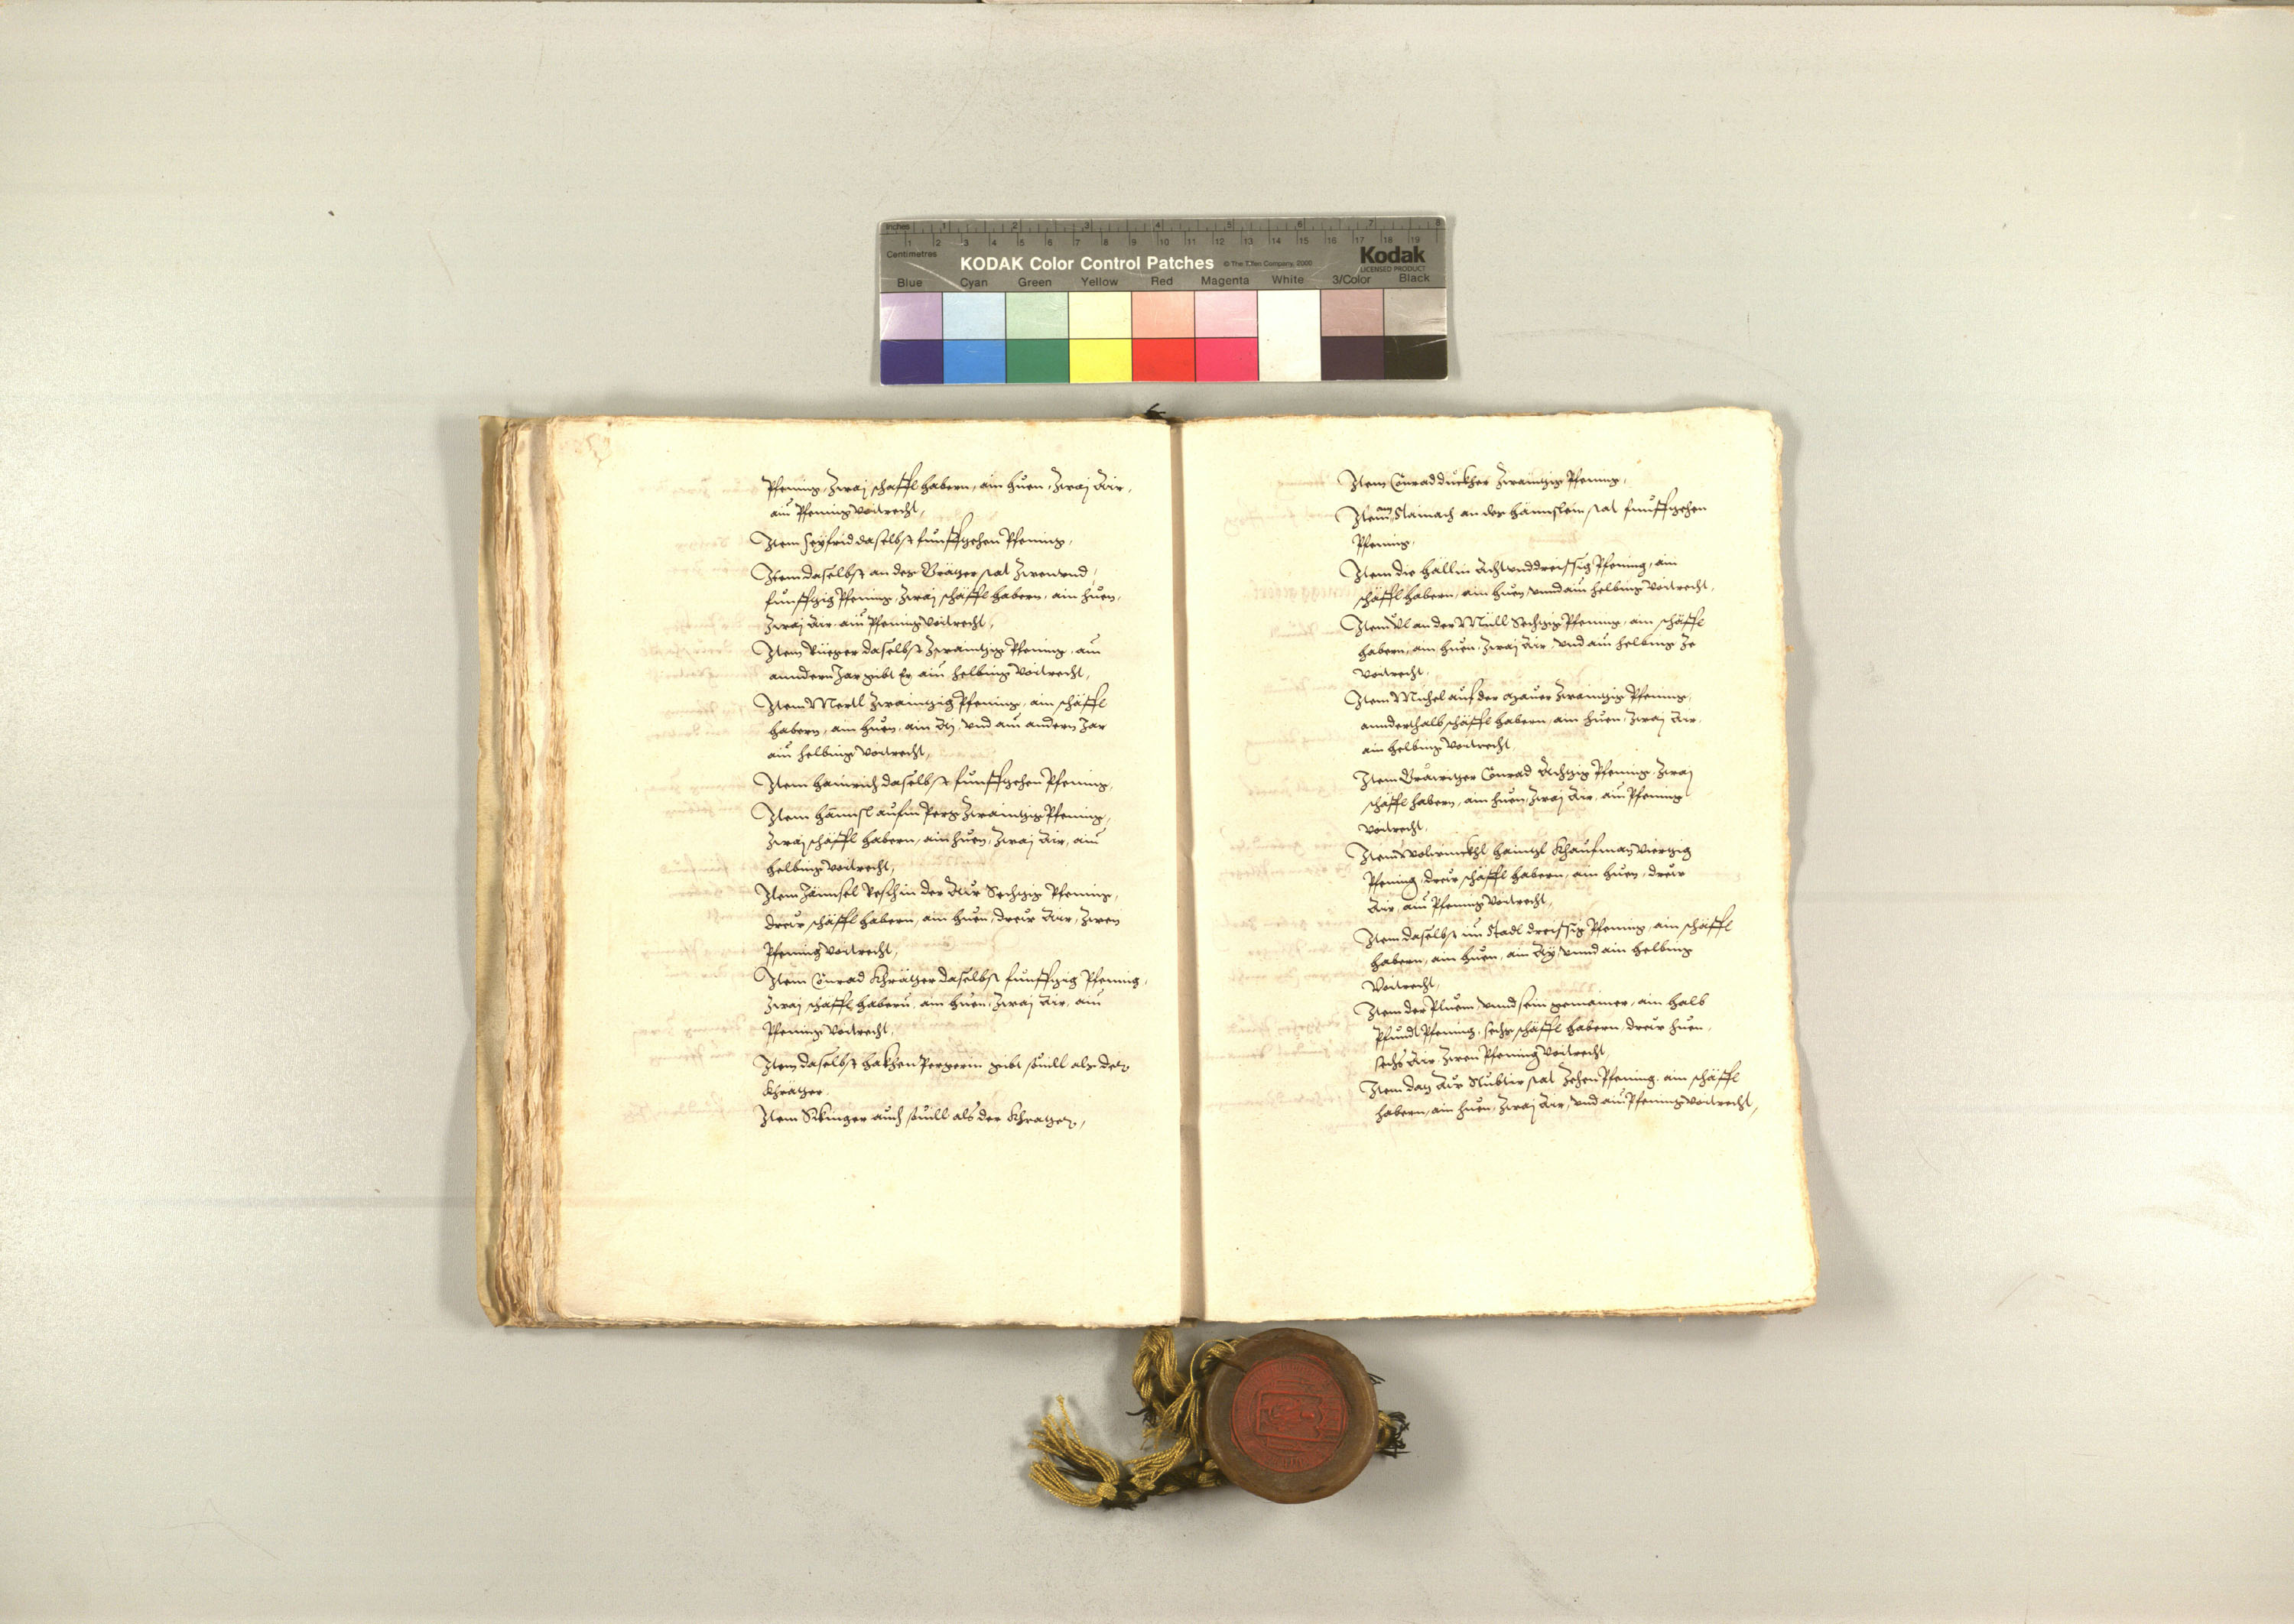 Inches 1 2 3 4 5 6 7 8
Centimetres 1 2 3 4 5 6 7 8 9 10 11 12 13 14 15 16 17 18 19
KODAK Color Control Patches © The Tiffen Company, 2000 Kodak
LICENSED PRODUCT
Blue Cyan Green Yellow Red Magenta White 3/Color Black
Pfening, Zwaj schäffl habern, ain huen, Zwaj Air,
ain Pfening Voitrecht,
Item Seyfrid daselbst funffzehen Pfening,
Item daselbst an der Präger stat Zwenund
funffzig Pfening, Zwaj schäffl habern, ain huen,
Zwaj Air, ain Pfening Voitrecht,
Item Rueger daselbst Zwaintzig Pfening, am
anndern Jar gibt Er ain helbing Voitrecht,
Item Mertl Zwaintzig Pfening, ain schäffl
habern, ain huen, ain Aj, und am andern Jar
ain helbing Voitrecht,
Item Hainrich daselbst funffzehen Pfening,
Item Hännsl aufm Perg Zwaintzig Pfening,
Zwaj schäffl habern, ain huen, Zwaj Air, ain
helbing Voitrecht,
Item Hännsel Resch in der Aur Sechtzig Pfening,
dreir schäffl habern, ain huen, dreir Air, Zwen
Pfening Voitrecht,
Item Conrad Khrätzer daselbst funffzig Pfening,
Zwaj schäffl habern, ain huen, Zwaj Air, ain
Pfening Voitrecht,
Item daselbst Pergerin gibt souill als der
Khrätzer
Item Sikinger auch souill als der Khratzer,
Item Conrad Zwaintzig Pfening,
Item am Stainach an der Hännslein stat funffzehen
Pfening,
Item die Hallin Acht unddreissig Pfening, ain
schäffl habern, ain huen, unnd ain helbing Voitrecht,
Item Ul an der Müll Sechtzig Pfening, ain schäffl
habern, ain huen, Zwaj Air, und ain helbing Ze
Voitrecht,
Item Michel auf der Mauer Zwaintzig Pfening,
annderthalb schäffl habern, ain huen, Zwaj Air,
ain helbing Voitrecht,
Item Conrad Achtzig Pfening, Zwaj
schäffl habern, ain huen, Zwaj Air, ain Pfening
Voitrecht,
Item Haintzl Khaufman Viertzig
Pfening, dreir schäffl habern, ain huen, dreir
Air, ain Pfening Voitrecht,
Item daselbst im Stadl dreissig Pfening, ain schäffl
habern, ain huen, ain Ay, unnd ain helbing
Voitrecht,
Item der Pluem, unnd sein gemainer, ain halb
Pfundt Pfening, sechs schäffl habern, dreir huen,
sechs Air, Zwen Pfening Voitrecht,
Item stat Zehen Pfening, ain schäffl
habern, ain huen, Zwaj Air, und ain Pfening Voitrecht,